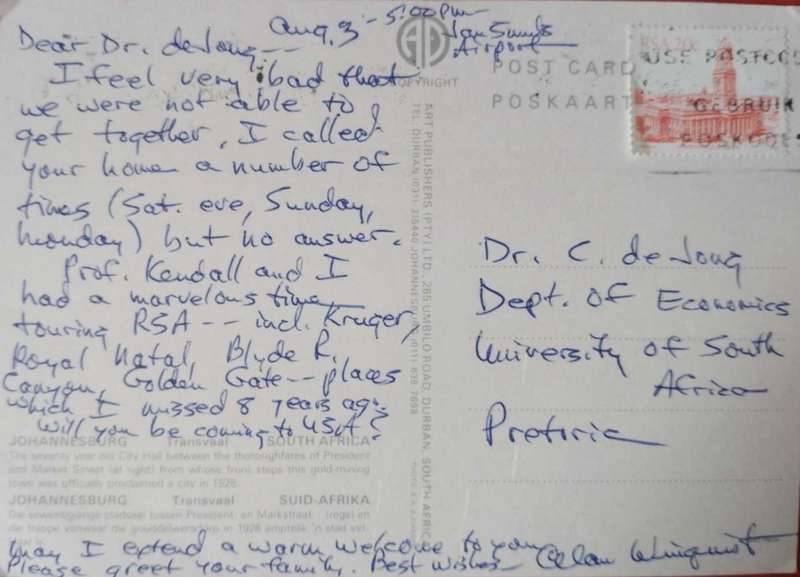 Aug. 3 - 5:00pm
Jan Smuts
Airport
Dear Dr. de Jong --
I feel very bad that
we were not able to
get together. I called
your home a number of
times (Sat. eve, Sunday,
Monday) but no answer.
Prof. Kendall and I
had a marvelous time
touring RSA -- incl. Kruger,
Royal Natal, Blyde R.
Canyon, Golden Gate -- places
which I missed 8 years ago.
Will you be coming to USA?
May I extend a warm welcome to you.
Please greet your family. Best wishes - Alan
COPYRIGHT
POST CARD
POSKAART
RSA 20c
USE POSTCOD
GEBRUIK
POSKODES
Dr. C. de Jong
Dept. of Economics
University of South
Africa
Pretoria
ART PUBLISHERS (PTY) LTD., 265 UMBILO ROAD, DURBAN, SOUTH AFRICA
TEL. DURBAN (031) 315440 JOHANNESBURG (011) 838 7698
JOHANNESBURG Transvaal SOUTH AFRICA
The seventy year old City Hall between the thoroughfares of President
and Market Street (at right) from whose front steps this gold-mining
town was officially proclaimed a city in 1928.
JOHANNESBURG Transvaal SUID-AFRIKA
Die sewentigjarige stadsaal tussen President- en Markstraat (regs) en
die trappe vanwaar die gouddelwersdorp in 1928 amptelik 'n stad